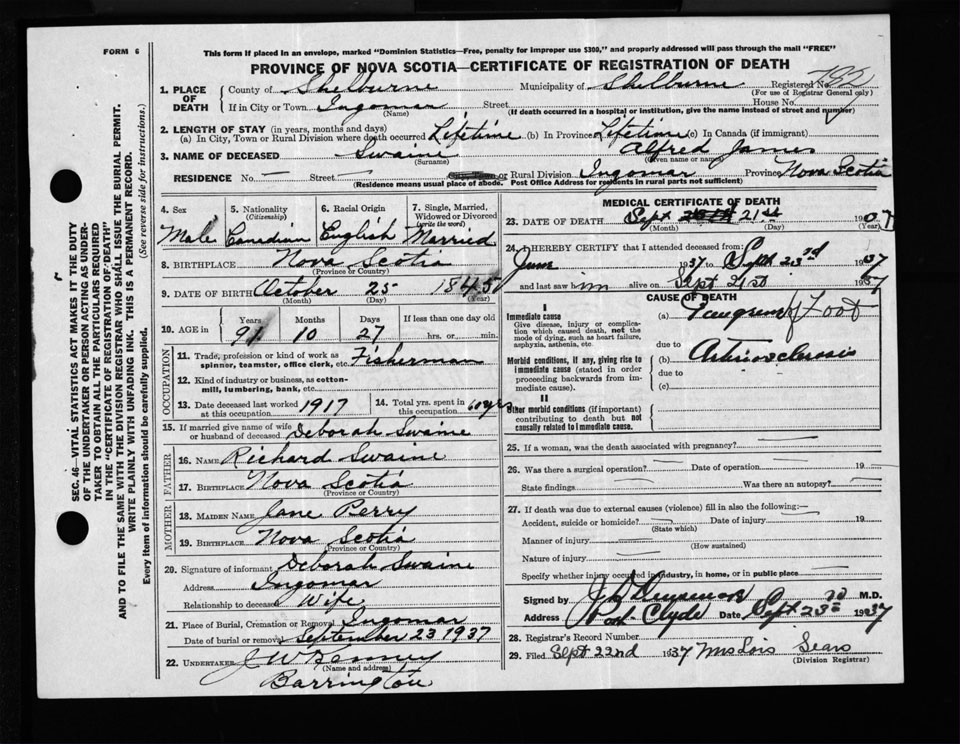 FORM 6
This form if placed in an envelope, marked "Dominion Statistics—Free, penalty for improper use $300," and properly addressed will pass through the mail "FREE"
PROVINCE OF NOVA SCOTIA—CERTIFICATE OF REGISTRATION OF DEATH
1. PLACE OF DEATH
County of Shelburne Municipality of Shelburne Registered No. 782
(For use of Registrar General only)
If in City or Town Ingomar Street House No.
(Name) (If death occurred in a hospital or institution, give the name instead of street and number)
2. LENGTH OF STAY (in years, months and days)
(a) In City, Town or Rural Division where death occurred Lifetime (b) In Province Lifetime (c) In Canada (if immigrant)
3. NAME OF DECEASED Swaine Alfred James
(Surname) (Given name or names)
RESIDENCE No. — Street — City, Town or Rural Division Ingomar Province Nova Scotia
(Residence means usual place of abode. Post Office Address for residents in rural parts not sufficient)
4. Sex Male
5. Nationality (Citizenship) Canadian
6. Racial Origin English
7. Single, Married, Widowed or Divorced (write the word) Married
8. BIRTHPLACE Nova Scotia
(Province or Country)
9. DATE OF BIRTH October 25 1845
(Month) (Day) (Year)
10. AGE in Years Months Days If less than one day
91 10 27 hrs. or min.
OCCUPATION
11. Trade, profession or kind of work as spinner, teamster, office clerk, etc. Fisherman
12. Kind of industry or business, as cotton-mill, lumbering, bank, etc.
13. Date deceased last worked at this occupation 1917
14. Total yrs. spent in this occupation 60 yrs
15. If married give name of wife or husband of deceased Deborah Swaine
FATHER
16. NAME Richard Swaine
17. BIRTHPLACE Nova Scotia
(Province or Country)
MOTHER
18. MAIDEN NAME Jane Perry
19. BIRTHPLACE Nova Scotia
(Province or Country)
20. Signature of informant Deborah Swaine
Address Ingomar
Relationship to deceased Wife
21. Place of Burial, Cremation or Removal Ingomar
Date of burial or removal September 23 1937
22. UNDERTAKER J W Kenney
(Name and address)
Barrington
MEDICAL CERTIFICATE OF DEATH
23. DATE OF DEATH Sept 21st 1937
(Month) (Day) (Year)
24. I HEREBY CERTIFY that I attended deceased from:
June 1937 to Sept 23rd 1937
and last saw him alive on Sept 21st 1937
CAUSE OF DEATH
I
Immediate cause
Give disease, injury or complication which caused death, not the mode of dying, such as heart failure, asphyxia, asthenia, etc.
(a) Gangrene of Foot
due to
Morbid conditions, if any, giving rise to immediate cause (stated in order proceeding backwards from immediate cause).
(b) Arteriosclerosis
due to
(c)
II
Other morbid conditions (if important) contributing to death but not causally related to immediate cause.
25. If a woman, was the death associated with pregnancy?
26. Was there a surgical operation? Date of operation 19
State findings Was there an autopsy?
27. If death was due to external causes (violence) fill in also the following:—
Accident, suicide or homicide? Date of injury 19
(State which)
Manner of injury
(How sustained)
Nature of injury
Specify whether injury occurred in industry, in home, or in public place
Signed by M.D.
Address Clyde Date Sept 23rd 1937
28. Registrar's Record Number
29. Filed Sept 22nd 1937 Mrs Lois Sears
(Division Registrar)
SEC. 46—VITAL STATISTICS ACT MAKES IT THE DUTY
OF THE UNDERTAKER OR PERSON ACTING AS UNDER-
TAKER TO OBTAIN ALL THE PARTICULARS REQUIRED
IN THE "CERTIFICATE OF REGISTRATION OF DEATH"
AND TO FILE THE SAME WITH THE DIVISION REGISTRAR WHO SHALL ISSUE THE BURIAL PERMIT.
WRITE PLAINLY WITH UNFADING INK. THIS IS A PERMANENT RECORD.
Every item of information should be carefully supplied. (See reverse side for instructions.)